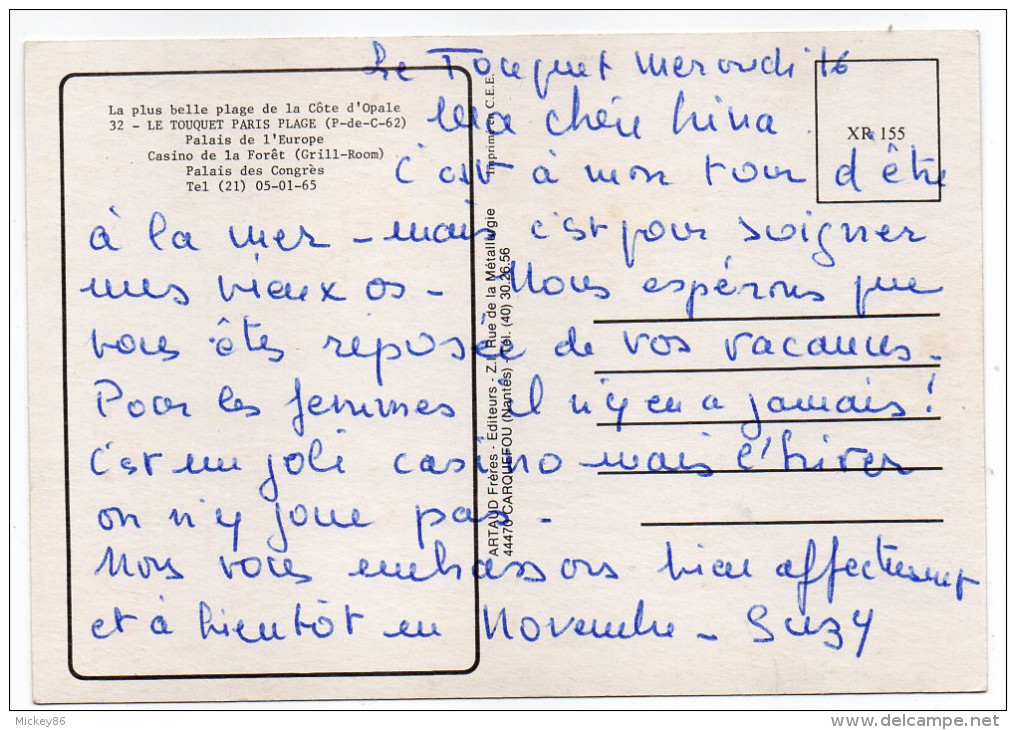 La plus belle plage de la Côte d'Opale
32 - LE TOUQUET PARIS PLAGE (P-de-C-62)
Palais de l'Europe
Casino de la Forêt (Grill-Room)
Palais des Congrès
Tel (21) 05-01-65
XR 155
Imprimé en C.E.E.
ARTAUD Frères - Editeurs - Z.I. Rue de la Métallurgie
44470 CARQUEFOU (Nantes) - Tél. (40) 30.26.56
Le Touquet Mercredi 16
Ma chère Nina
C'est à mon tour d'être
à la mer - mais c'est pour soigner
mes vieux os - Nous espérons que
vous êtes reposée de vos vacances.
Pour les femmes il n'y en a jamais !
C'est un joli casino mais l'hiver
on n'y joue pas -
Nous vous embrassons bien affectueusement
et à bientôt en Novembre - Suzy
Mickey86
www.delcampe.net